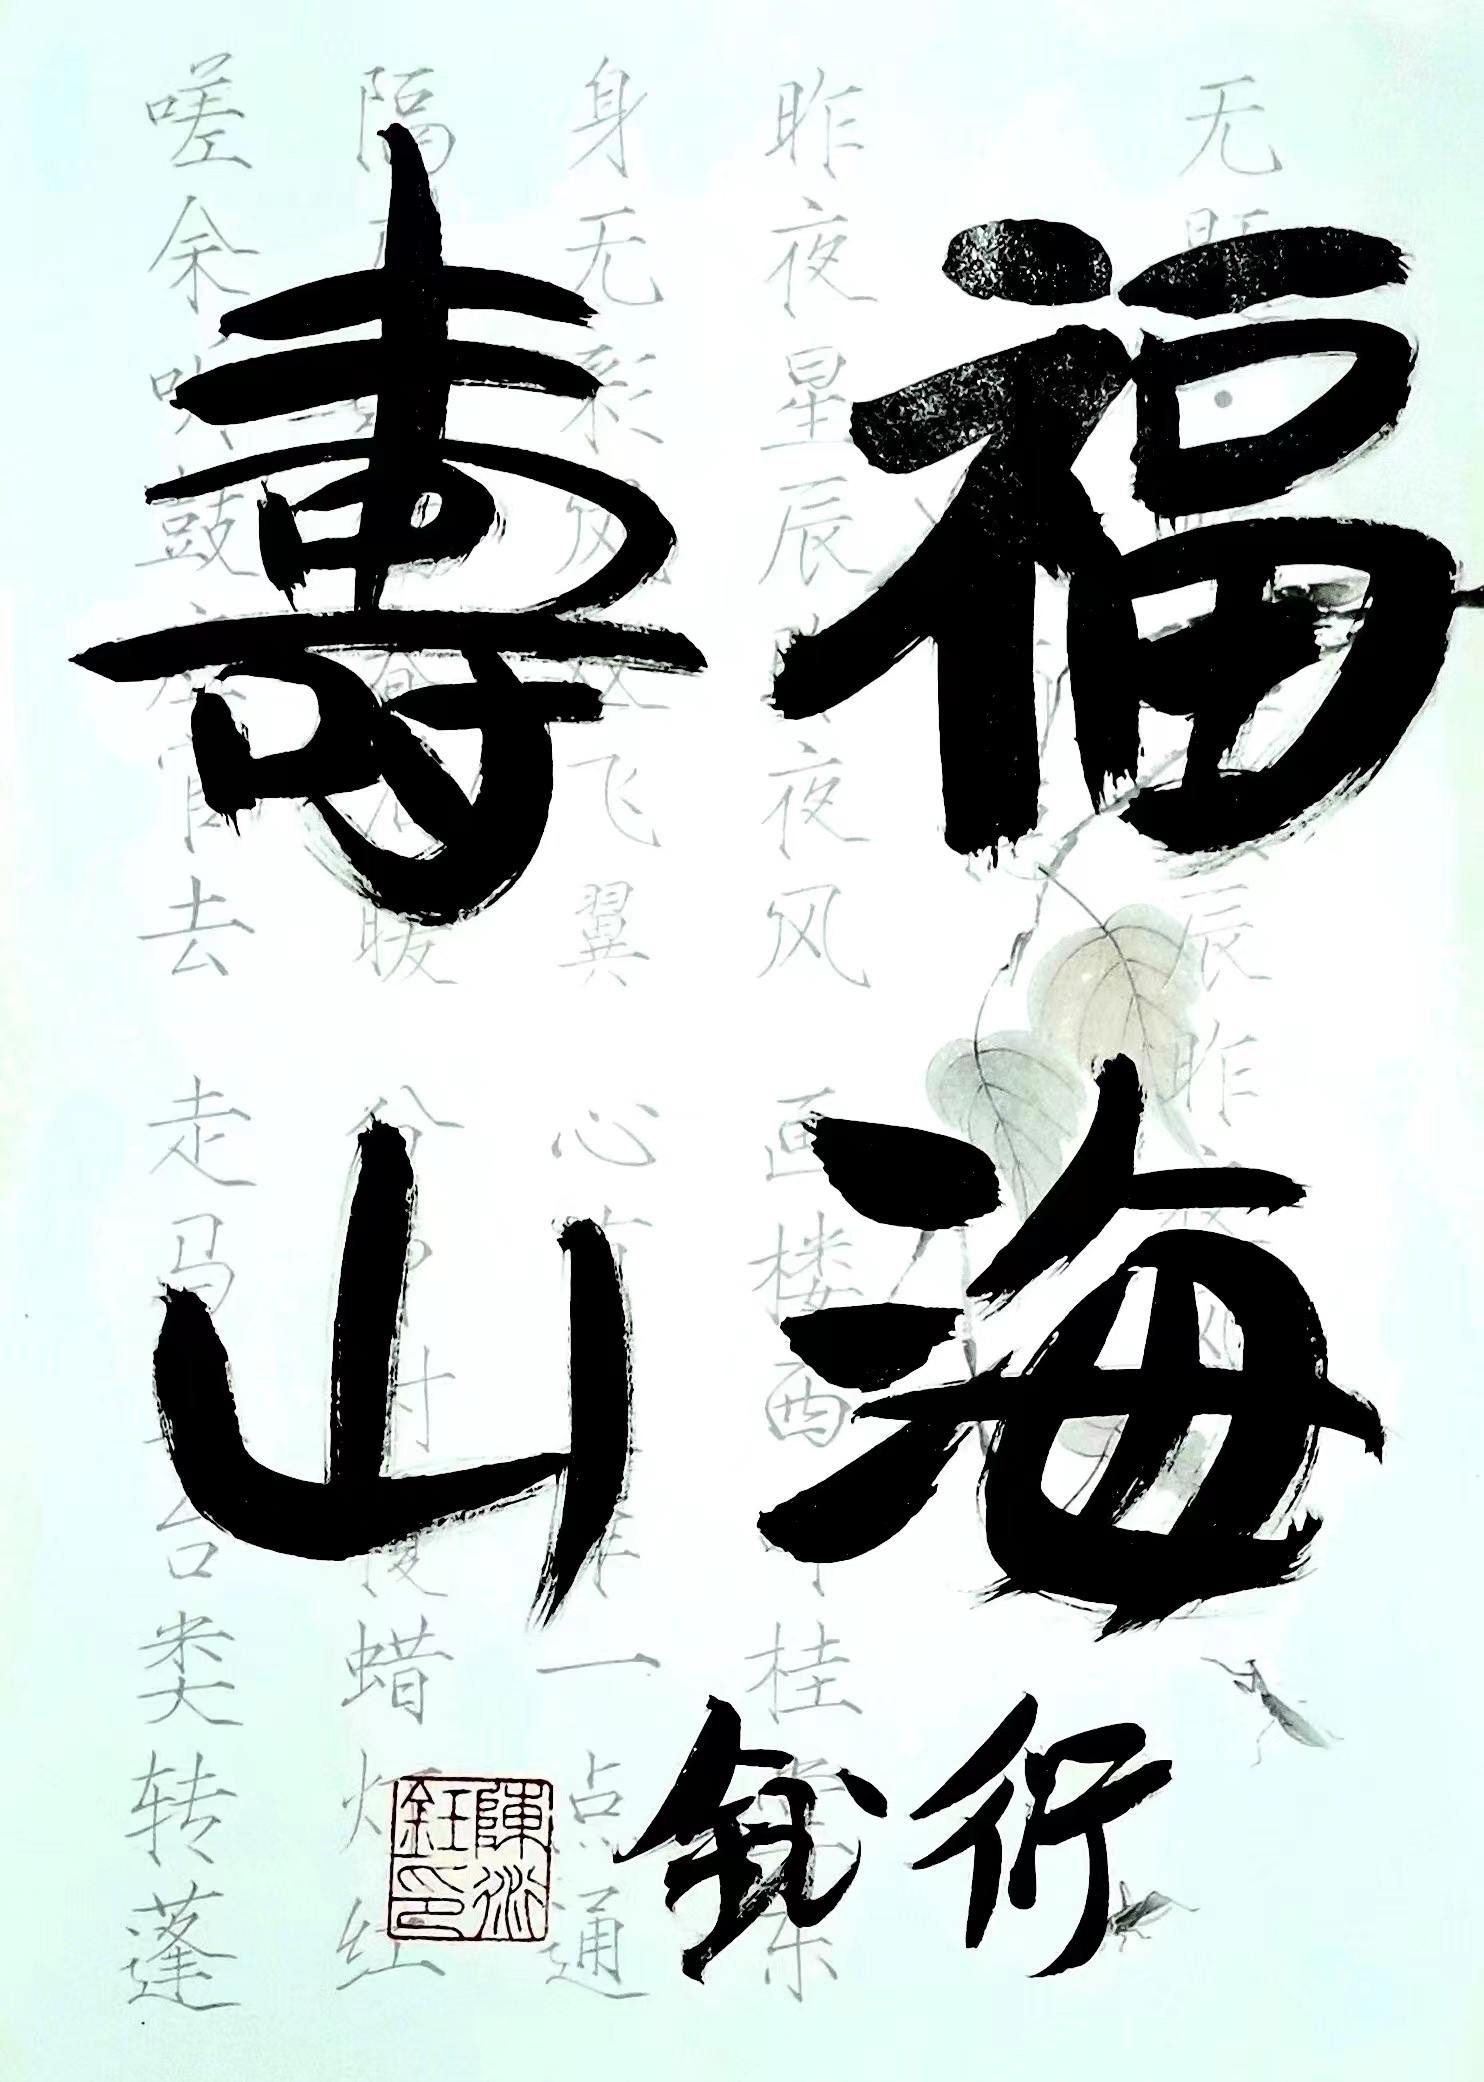 福海
壽山
衍鈺
陳衍
鈺印
无题 辰昨
昨夜星辰昨夜风 画楼西畔桂堂东
身无彩凤双飞翼 心有 一点通
隔 春酒暖 分 射覆蜡灯红
嗟余听鼓应官去 走马 台类转蓬